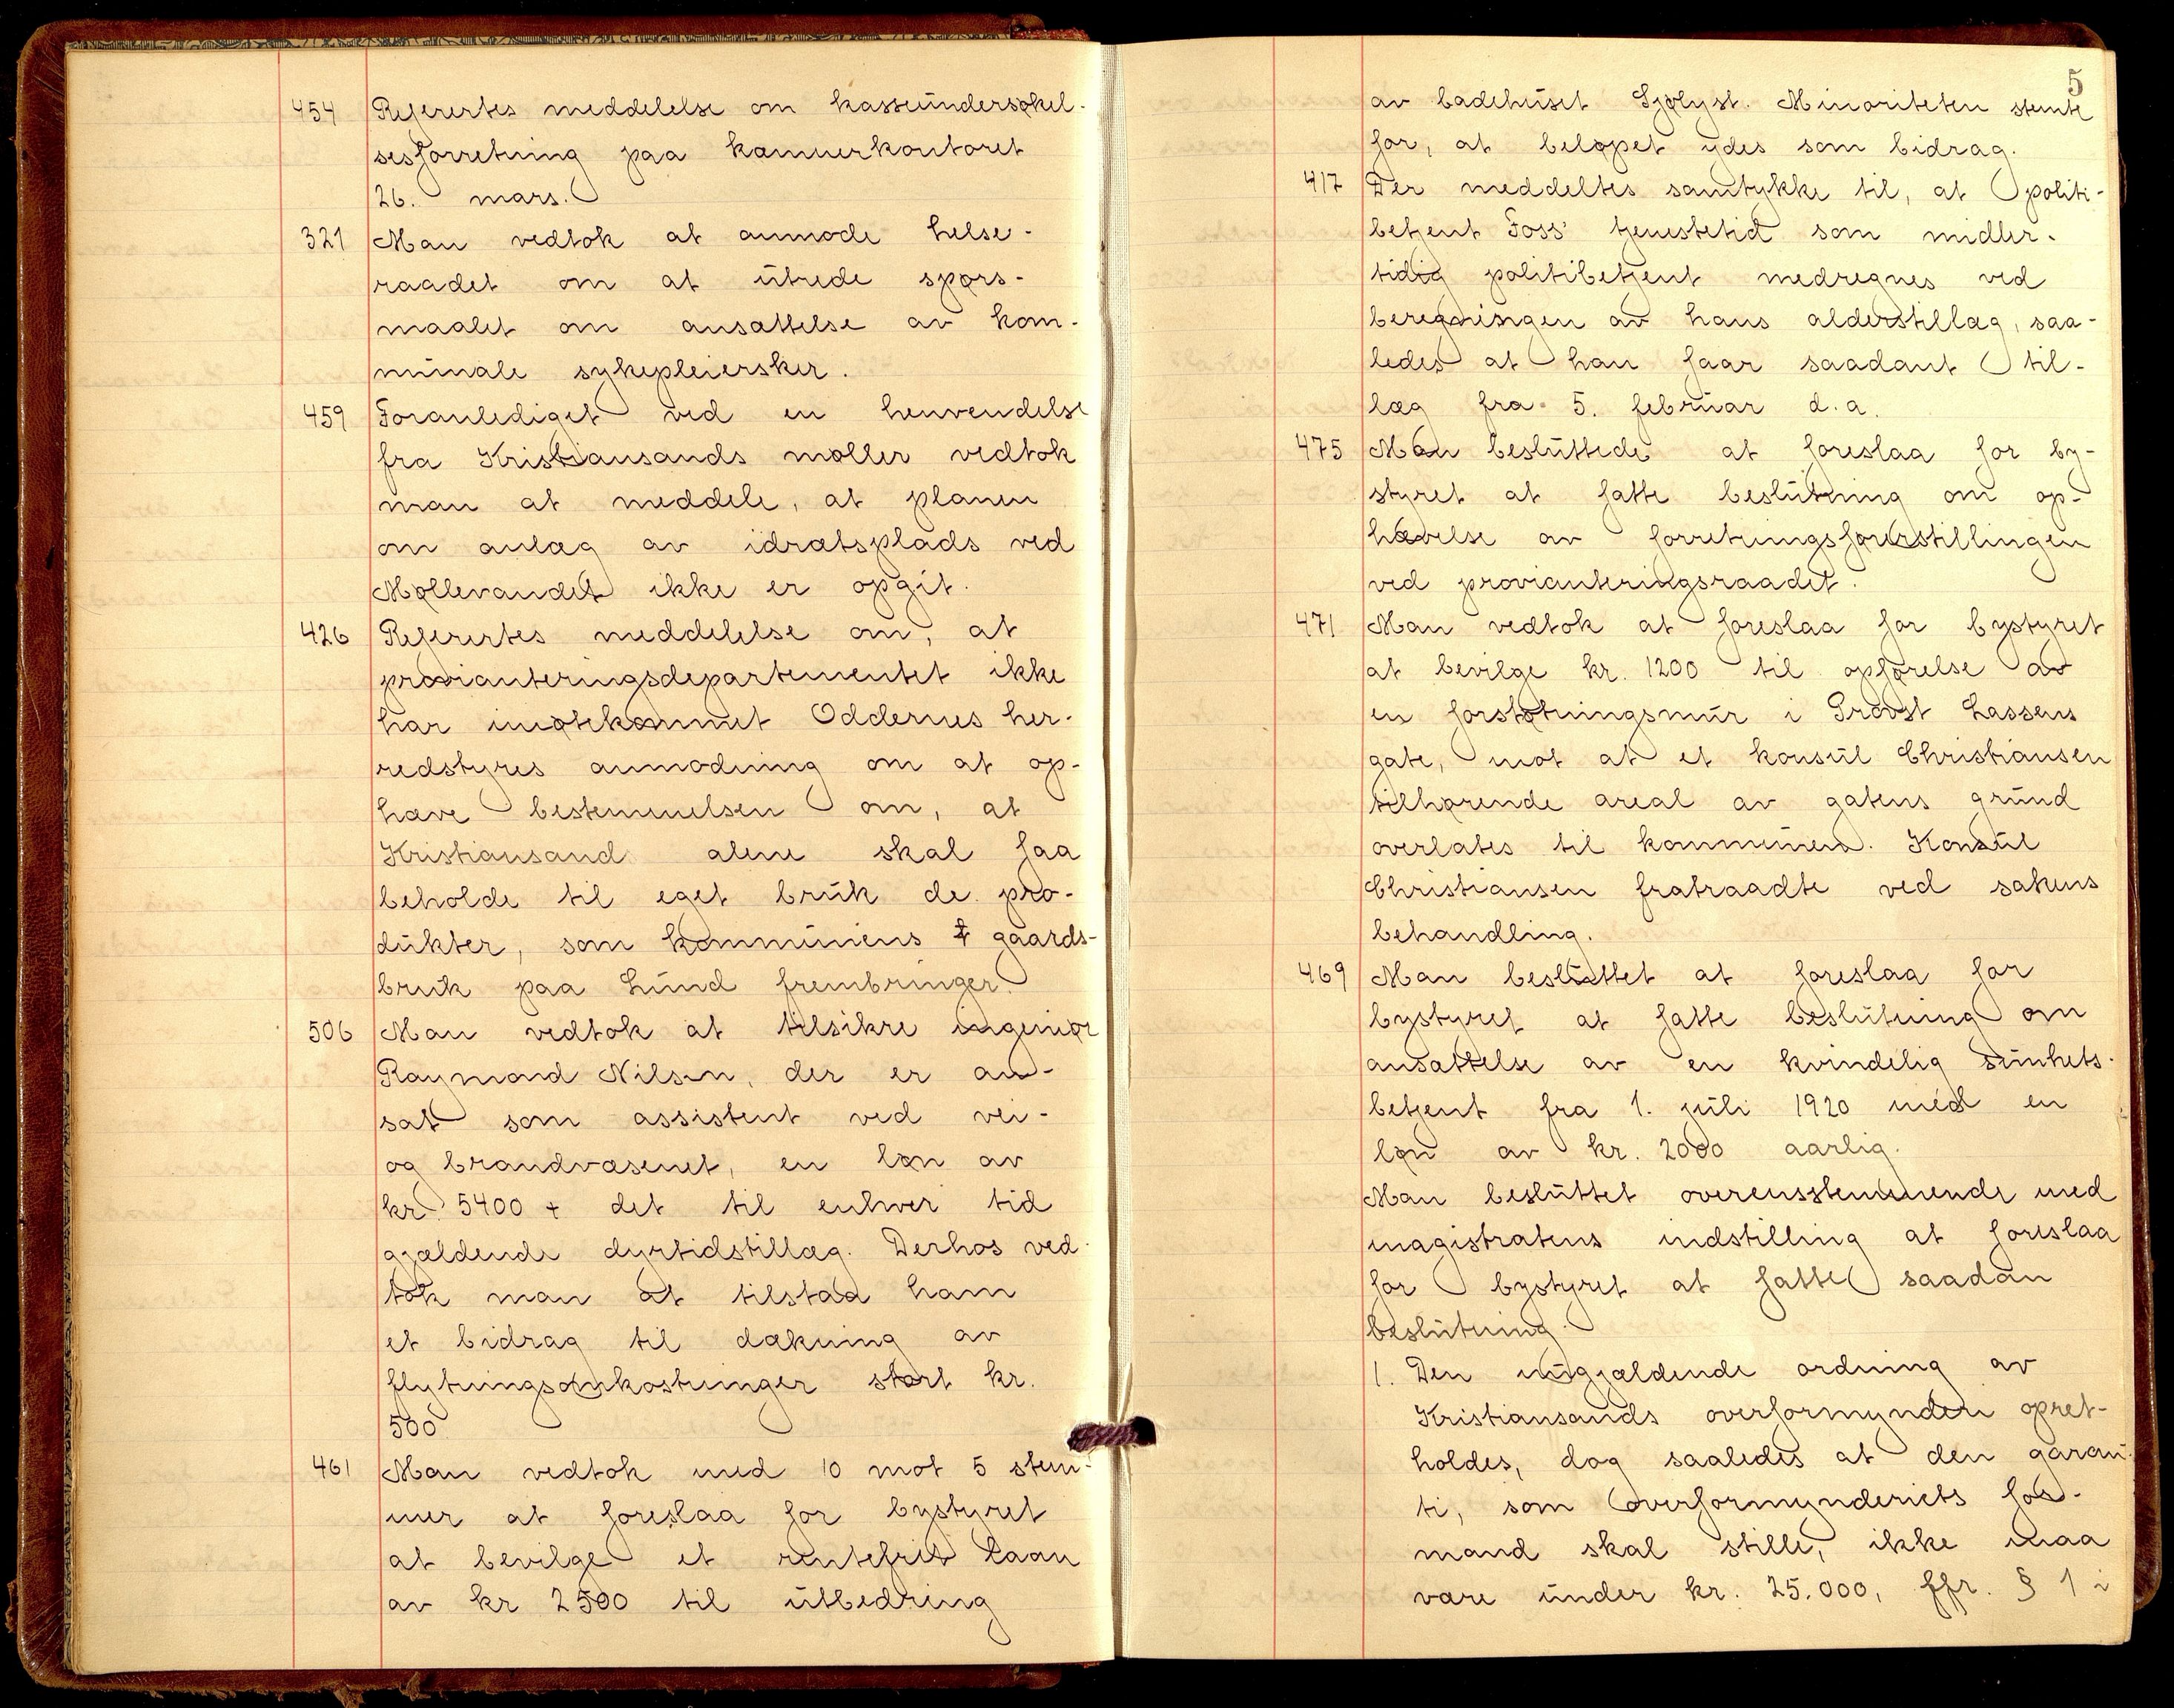 454 Refereres meddelelse om kasseundersøkel-
sesforretning paa kæmnerkontoret
26. mars.
321 Man vedtok at anmode helse-
raadet om at utrede spørs-
maalet om ansættelse av kom-
munale sykepleiersker.
459 Foranlediget ved en henvendelse
fra Kristiansands møller vedtok
man at meddele, at planen
om anlæg av idrætsplads ved
Møllevandet ikke er opgit.
426 Refereres meddelelse om, at
provianteringsdepartementet ikke
har imøtekommet Oddernes her-
redstyres anmodning om at op-
hæve bestemmelsen om, at
Kristiansand alene skal faa
beholde til eget bruk de pro-
dukter, som kommunens gaards-
bruk paa Lund frembringer.
506 Man vedtok at tilsikre ingeniør
Raymond Nilsen, der er an-
sat som assistent ved vei-
og brandvæsenet, en løn av
kr. 5400 + det til enhver tid
gjældende dyrtidstillæg. Derhos ved-
tok man at tilstaa ham
et bidrag til dækning av
flytningsomkostninger stort kr.
500
461 Man vedtok med 10 mot 5 stem-
mer at foreslaa for bystyret
at bevilge et rentefrit laan
av kr 2500 til utbedring
5
av badehuset Sjølyst. Minoriteten stemte
for, at beløpet ydes som bidrag.
417 Der meddeltes samtykke til, at politi-
betjent Foss' tjenestetid som midler-
tidig politibetjent medregnes ved
beregningen av hans alderstillæg, saa-
ledes at han faar saadant til-
læg fra 5. februar d.a.
475 Man besluttede at foreslaa for by-
styret at fatte beslutning om op-
hævelse av forretningsførerstillingen
ved provianteringsraadet.
471 Man vedtok at foreslaa for bystyret
at bevilge kr. 1200 til opførelse av
en forstøtningsmur i Provst Lassens
gate, mot at et konsul Christiansen
tilhørende areal av gatens grund
overlates til kommunen. Konsul
Christiansen fratraadte ved sakens
behandling.
469 Man besluttet at foreslaa for
bystyret at fatte beslutning om
ansættelse av en kvindelig sunhets-
betjent fra 1. juli 1920 med en
løn av kr. 2000 aarlig.
Man besluttet overensstemmende med
magistratens indstilling at foreslaa
for bystyret at fatte saadan
beslutning.
1. Den nugjældende ordning av
Kristiansands overformynderi opret-
holdes, dog saaledes at den garan-
ti, som overformynderiets for-
mand skal stille, ikke maa
være under kr. 25.000, ffr. § 1 i